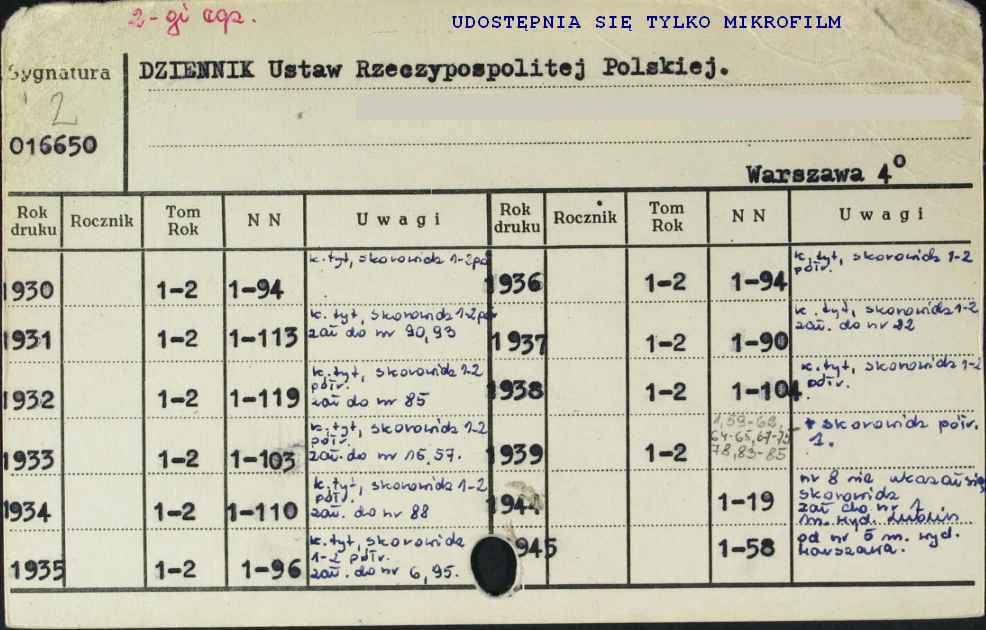 2-gi egz.
UDOSTĘPNIA SIĘ TYLKO MIKROFILM
Sygnatura
DZIENNIK Ustaw Rzeczypospolitej Polskiej.
2
016650
Warszawa 4°
Rok druku Rocznik Tom Rok NN Uwagi Rok druku Rocznik Tom Rok NN Uwagi
1930 1-2 1-94 k. tyt, skorowidz 1-2 pół
1931 1-2 1-113 k. tyt, skorowidz 1-2 pół
zał do nr 90,93
1932 1-2 1-119 k. tyt, skorowidz 1-2
półr.
zał do nr 85
1933 1-2 1-103 k. tyt, skorowidz 1-2
półr.
zał. do nr 16,57.
1934 1-2 1-110 k. tyt, skorowidz 1-2
półr.
zał. do nr 88
1935 1-2 1-96 k. tyt, skorowidz
1-2 półr.
zał. do nr 6,95.
1936 1-2 1-94 k. tyt, skorowidz 1-2
półr.
1937 1-2 1-90 k. tyt, skorowidz 1-2
zał. do nr 22
1938 1-2 1-104 k. tyt, skorowidz 1-2
półr.
1939 1-2 1,59-63,
64-65,67-75
78,83-85
+ skorowidz półr.
1.
1944 1-19 nr 8 nie ukazał się
skorowidz
zał do nr 1
m. wyd. Lublin
1945 1-58 od nr 5 m. wyd.
Warszawa.